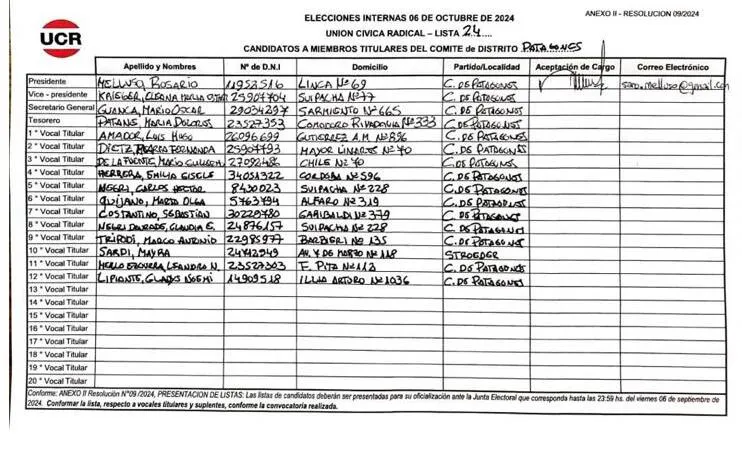 ANEXO II - RESOLUCION 09/2024
ELECCIONES INTERNAS 06 DE OCTUBRE DE 2024
UNION CIVICA RADICAL - LISTA 24
UCR
CANDIDATOS A MIEMBROS TITULARES DEL COMITE de DISTRITO PATAGONES
Apellido y Nombres N° de D.N.I Domicilio Partido/Localidad Aceptación de Cargo Correo Electrónico
Presidente MELLUSO, ROSARIO 11953516 LINCA Nº 69 C. DE PATAGONES
Vice - presidente 25904704 SUIPACHA Nº 77 C. DE PATAGONES
Secretario General GUANCA, MARIO OSCAR 29034297 SARMIENTO Nº 665 C. DE PATAGONES
Tesorero MARIA DOLORES 23527353 COMODORO RIVADAVIA Nº 333 C. DE PATAGONES
1 ° Vocal Titular AMADOR, LUIS HUGO 26096699 GUTIERREZ A.M. Nº 896 C. DE PATAGONES
2 ° Vocal Titular DIETZ, MARIA FERNANDA 25904793 MAYOR LINARES Nº 70 C. DE PATAGONES
3 ° Vocal Titular DE LA FUENTE, MARIO GUILLERM 27092486 CHILE Nº 70 C. DE PATAGONES
4 ° Vocal Titular HERRERA, EMILIA GISELE 34051322 CORDOBA Nº 596 C. DE PATAGONES
5 ° Vocal Titular NEGRI, CARLOS HECTOR 8430023 SUIPACHA Nº 228 C. DE PATAGONES
6 ° Vocal Titular QUIJANO, MARTA OLGA 5763794 ALFARO Nº 319 C. DE PATAGONES
7 ° Vocal Titular COSTANTINO, SEBASTIAN 30229780 GARIBALDI Nº 379 C. DE PATAGONES
8 ° Vocal Titular NEGRI CLAUDIA G. 24876157 SUIPACHA Nº 228 C. DE PATAGONES
9 ° Vocal Titular TRIPODI, MARCO ANTONIO 22985977 BARBIERI Nº 135 C. DE PATAGONES
10 ° Vocal Titular SARDI, MAYRA 24742949 AV. 7 DE MARZO Nº 118 STROEDER
11 ° Vocal Titular LEANDRO N. 23527303 F. PITA Nº 112 C. DE PATAGONES
12 ° Vocal Titular LIPIANTE, GLADYS NOEMI 14909518 ILLIA ARTURO Nº 1036 C. DE PATAGONES
13 ° Vocal Titular
14 ° Vocal Titular
15 ° Vocal Titular
16 ° Vocal Titular
17 ° Vocal Titular
18 ° Vocal Titular
19 ° Vocal Titular
20 ° Vocal Titular
Conforme: ANEXO II Resolución N°09 /2024, PRESENTACION DE LISTAS: Las listas de candidatos deberán ser presentadas para su oficialización ante la Junta Electoral que corresponda hasta las 23:59 hs. del viernes 06 de septiembre de
2024. Conformar la lista, respecto a vocales titulares y suplentes, conforme la convocatoria realizada.